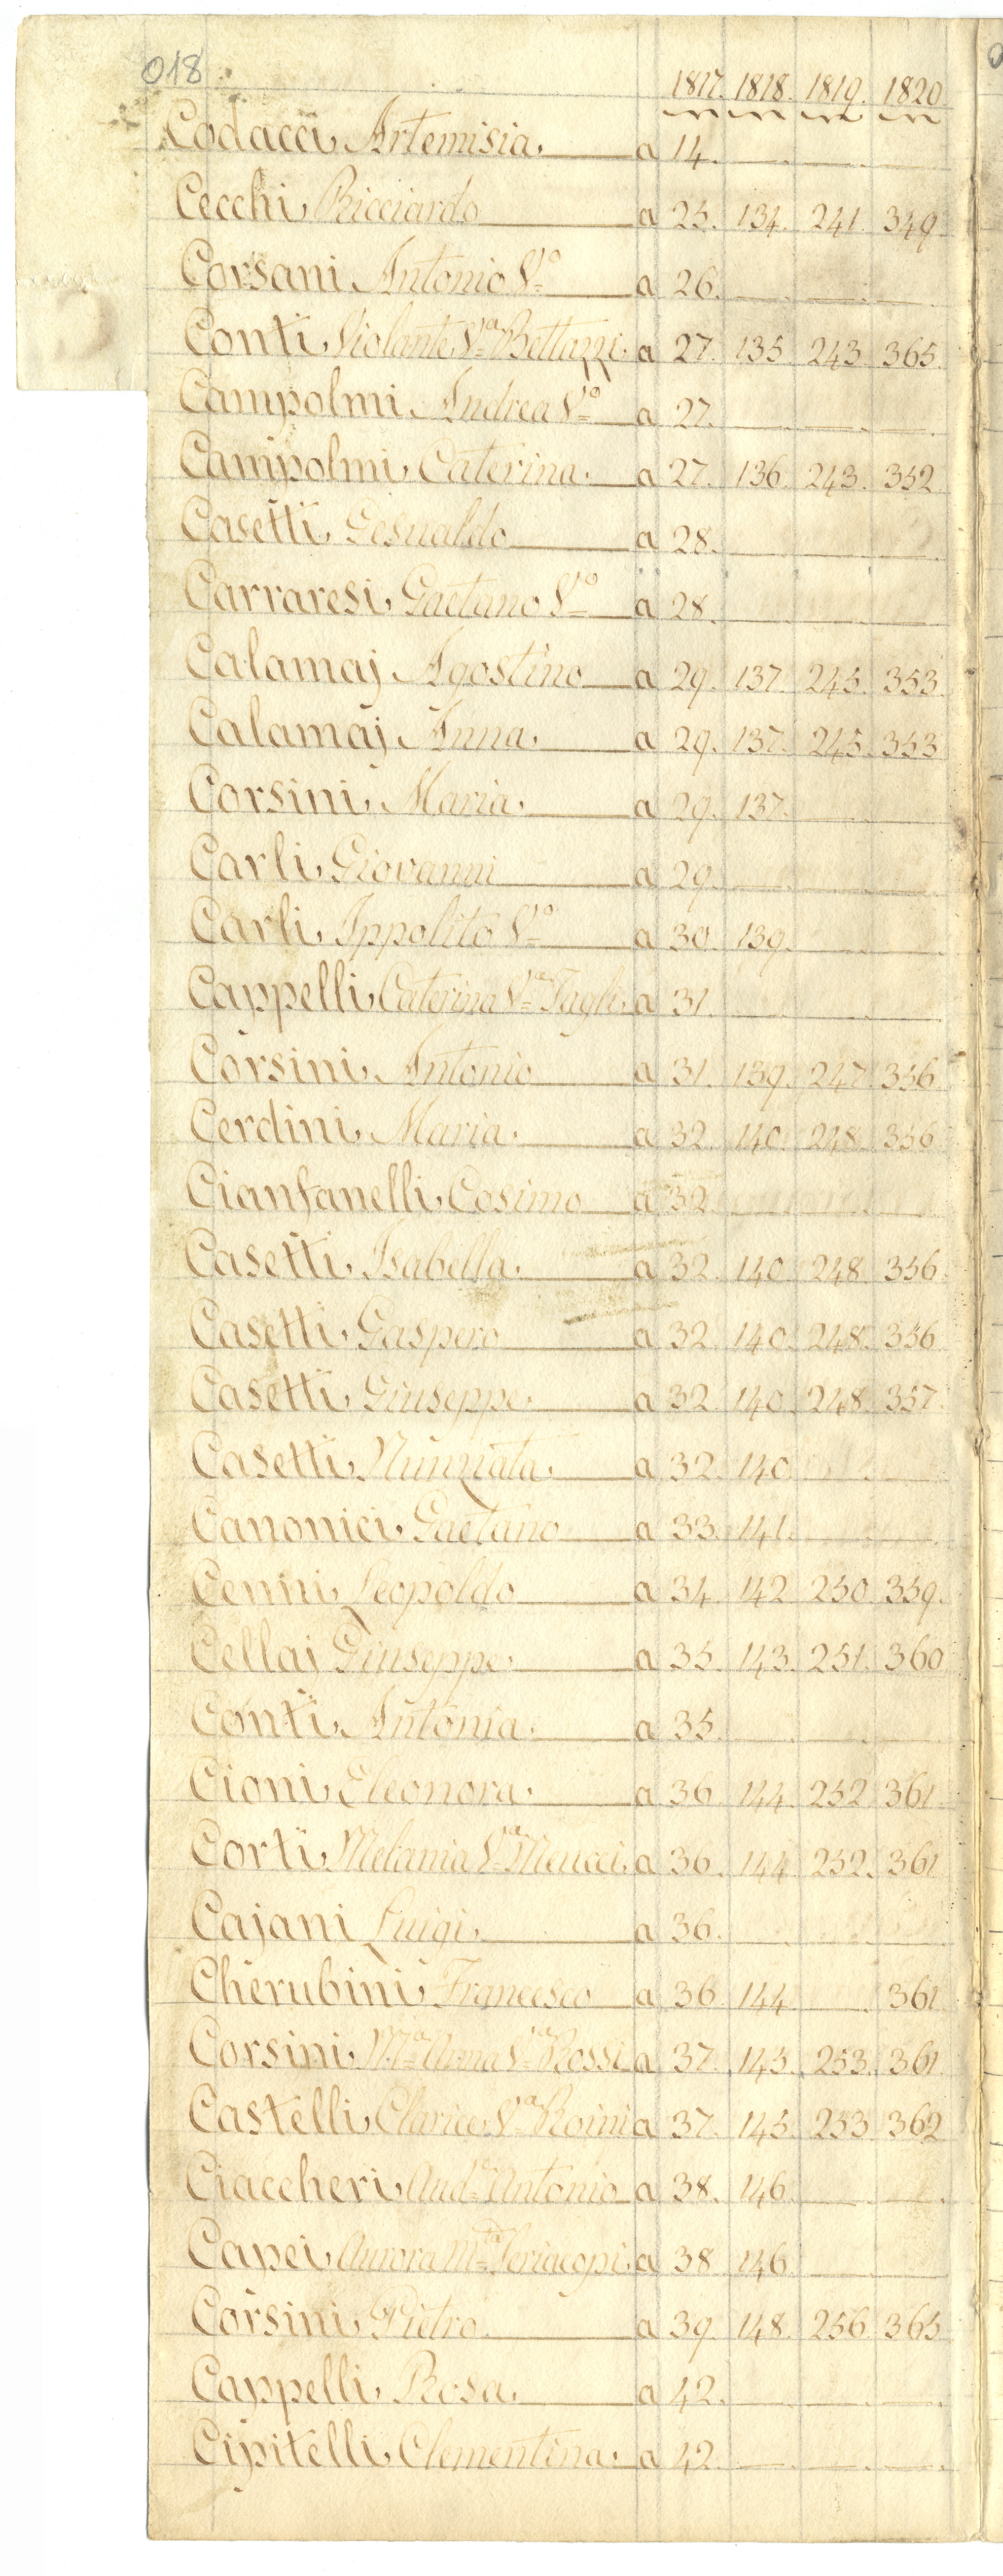 018
1817. 1818. 1819. 1820
Codacci, Artemisia. a 14.
Cecchi, Ricciardo a 25. 134. 241. 349
Corsani, Antonio Vo a 26.
Conti, Violante Va Bettazzi. a 27. 135. 243. 365.
Campolmi, Andrea Vo a 27.
Campolmi, Caterina. a 27. 136. 243. 352
Casetti, Gesualdo a 28.
Carraresi, Gaetano Vo a 28.
Calamaj, Agostino a 29. 137. 245. 353.
Calamaj, Anna. a 29. 137. 245. 353
Corsini, Maria. a 29. 137.
Carli, Giovanni a 29.
Carli, Ippolito Vo a 30. 139.
Cappelli, Caterina Va Tagli. a 31.
Corsini, Antonio a 31. 139. 247. 356
Cerdini, Maria. a 32. 140. 248. 356
Cianfanelli, Cosimo a 32
Casetti, Isabella. a 32. 140. 248. 356.
Casetti, Gaspero a 32. 140. 248. 356
Casetti, Giuseppe. a 32. 140. 248. 357.
Casetti, Nunziata. a 32. 140
Canonici, Gaetano a 33. 141.
Cenni, Leopoldo a 34. 142. 250. 359.
Cellai Giuseppe. a 35. 143. 251. 360
Conti, Antonia. a 35.
Cioni, Eleonora. a 36. 144. 252. 361.
Corti, Melania Va Meucci. a 36. 144. 252. 361
Cajani Luigi. a 36.
Cherubini, Francesco a 36 144. 361
Corsini, Ma Anna Va Rossi a 37. 145. 253. 361
Castelli, Clarice Va Roini a 37. 145. 253 362
Ciaccheri, Antonio a 38. 146.
Capei, Aurora a 38 146
Corsini, Pietro. a 39. 148. 256. 365
Cappelli, Rosa. a 42.
Cipitelli, Clementina. a 42.